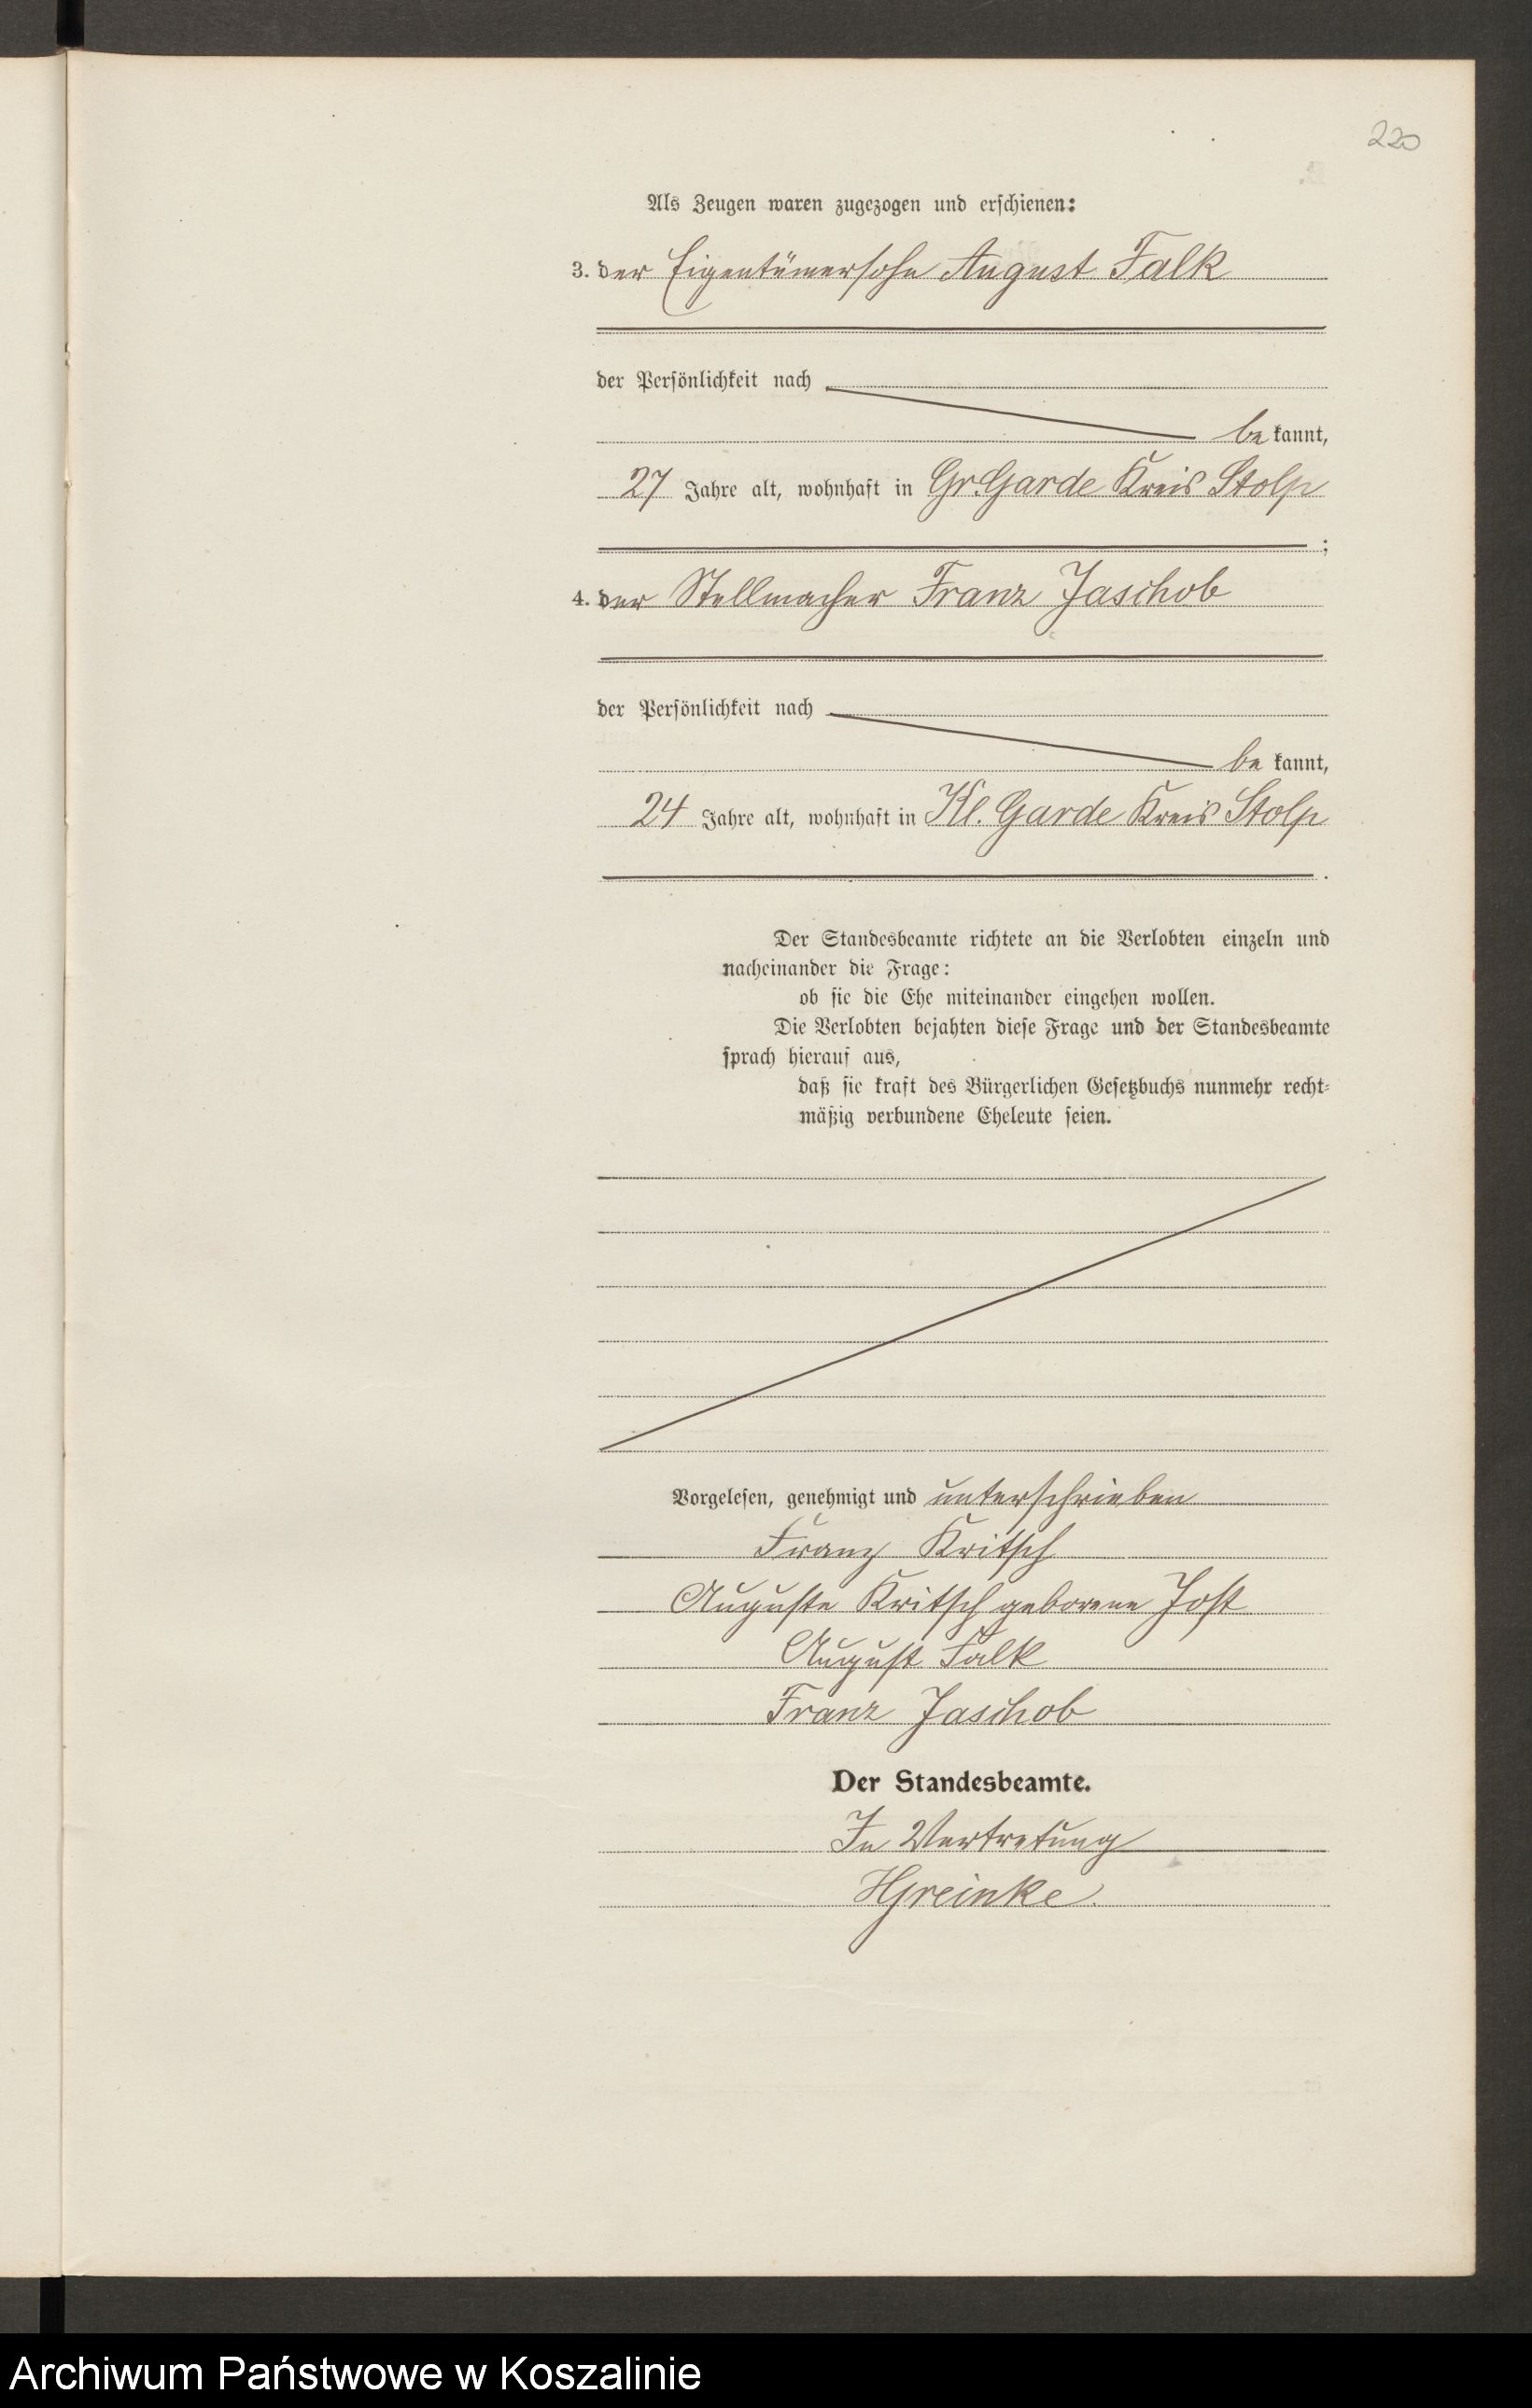 220
Als Zeugen waren zugezogen und erschienen:
3. der Eigentümersohn August Falk
der Persönlichkeit nach
be kannt,
27 Jahre alt, wohnhaft in Gr. Garde Kreis Stolp
;
4. der Stellmacher Franz Jaschob
der Persönlichkeit nach
be kannt,
24 Jahre alt, wohnhaft in Kl. Garde Kreis Stolp
.
Der Standesbeamte richtete an die Verlobten einzeln und
nacheinander die Frage:
ob sie die Ehe miteinander eingehen wollen.
Die Verlobten bejahten diese Frage und der Standesbeamte
sprach hierauf aus,
daß sie kraft des Bürgerlichen Gesetzbuchs nunmehr recht-
mäßig verbundene Eheleute seien.
Vorgelesen, genehmigt und unterschrieben
Franz Kritsch
Auguste Kritsch geborene Jost
August Falk
Franz Jaschob
Der Standesbeamte.
In Vertretung
HGreinke.
Archiwum Państwowe w Koszalinie